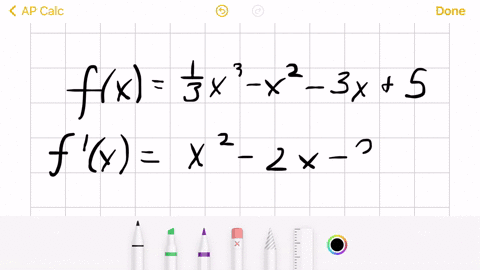 AP Calc
Done
f(x) = 1/3 x³ - x² - 3x + 5
f'(x) = x² - 2x -